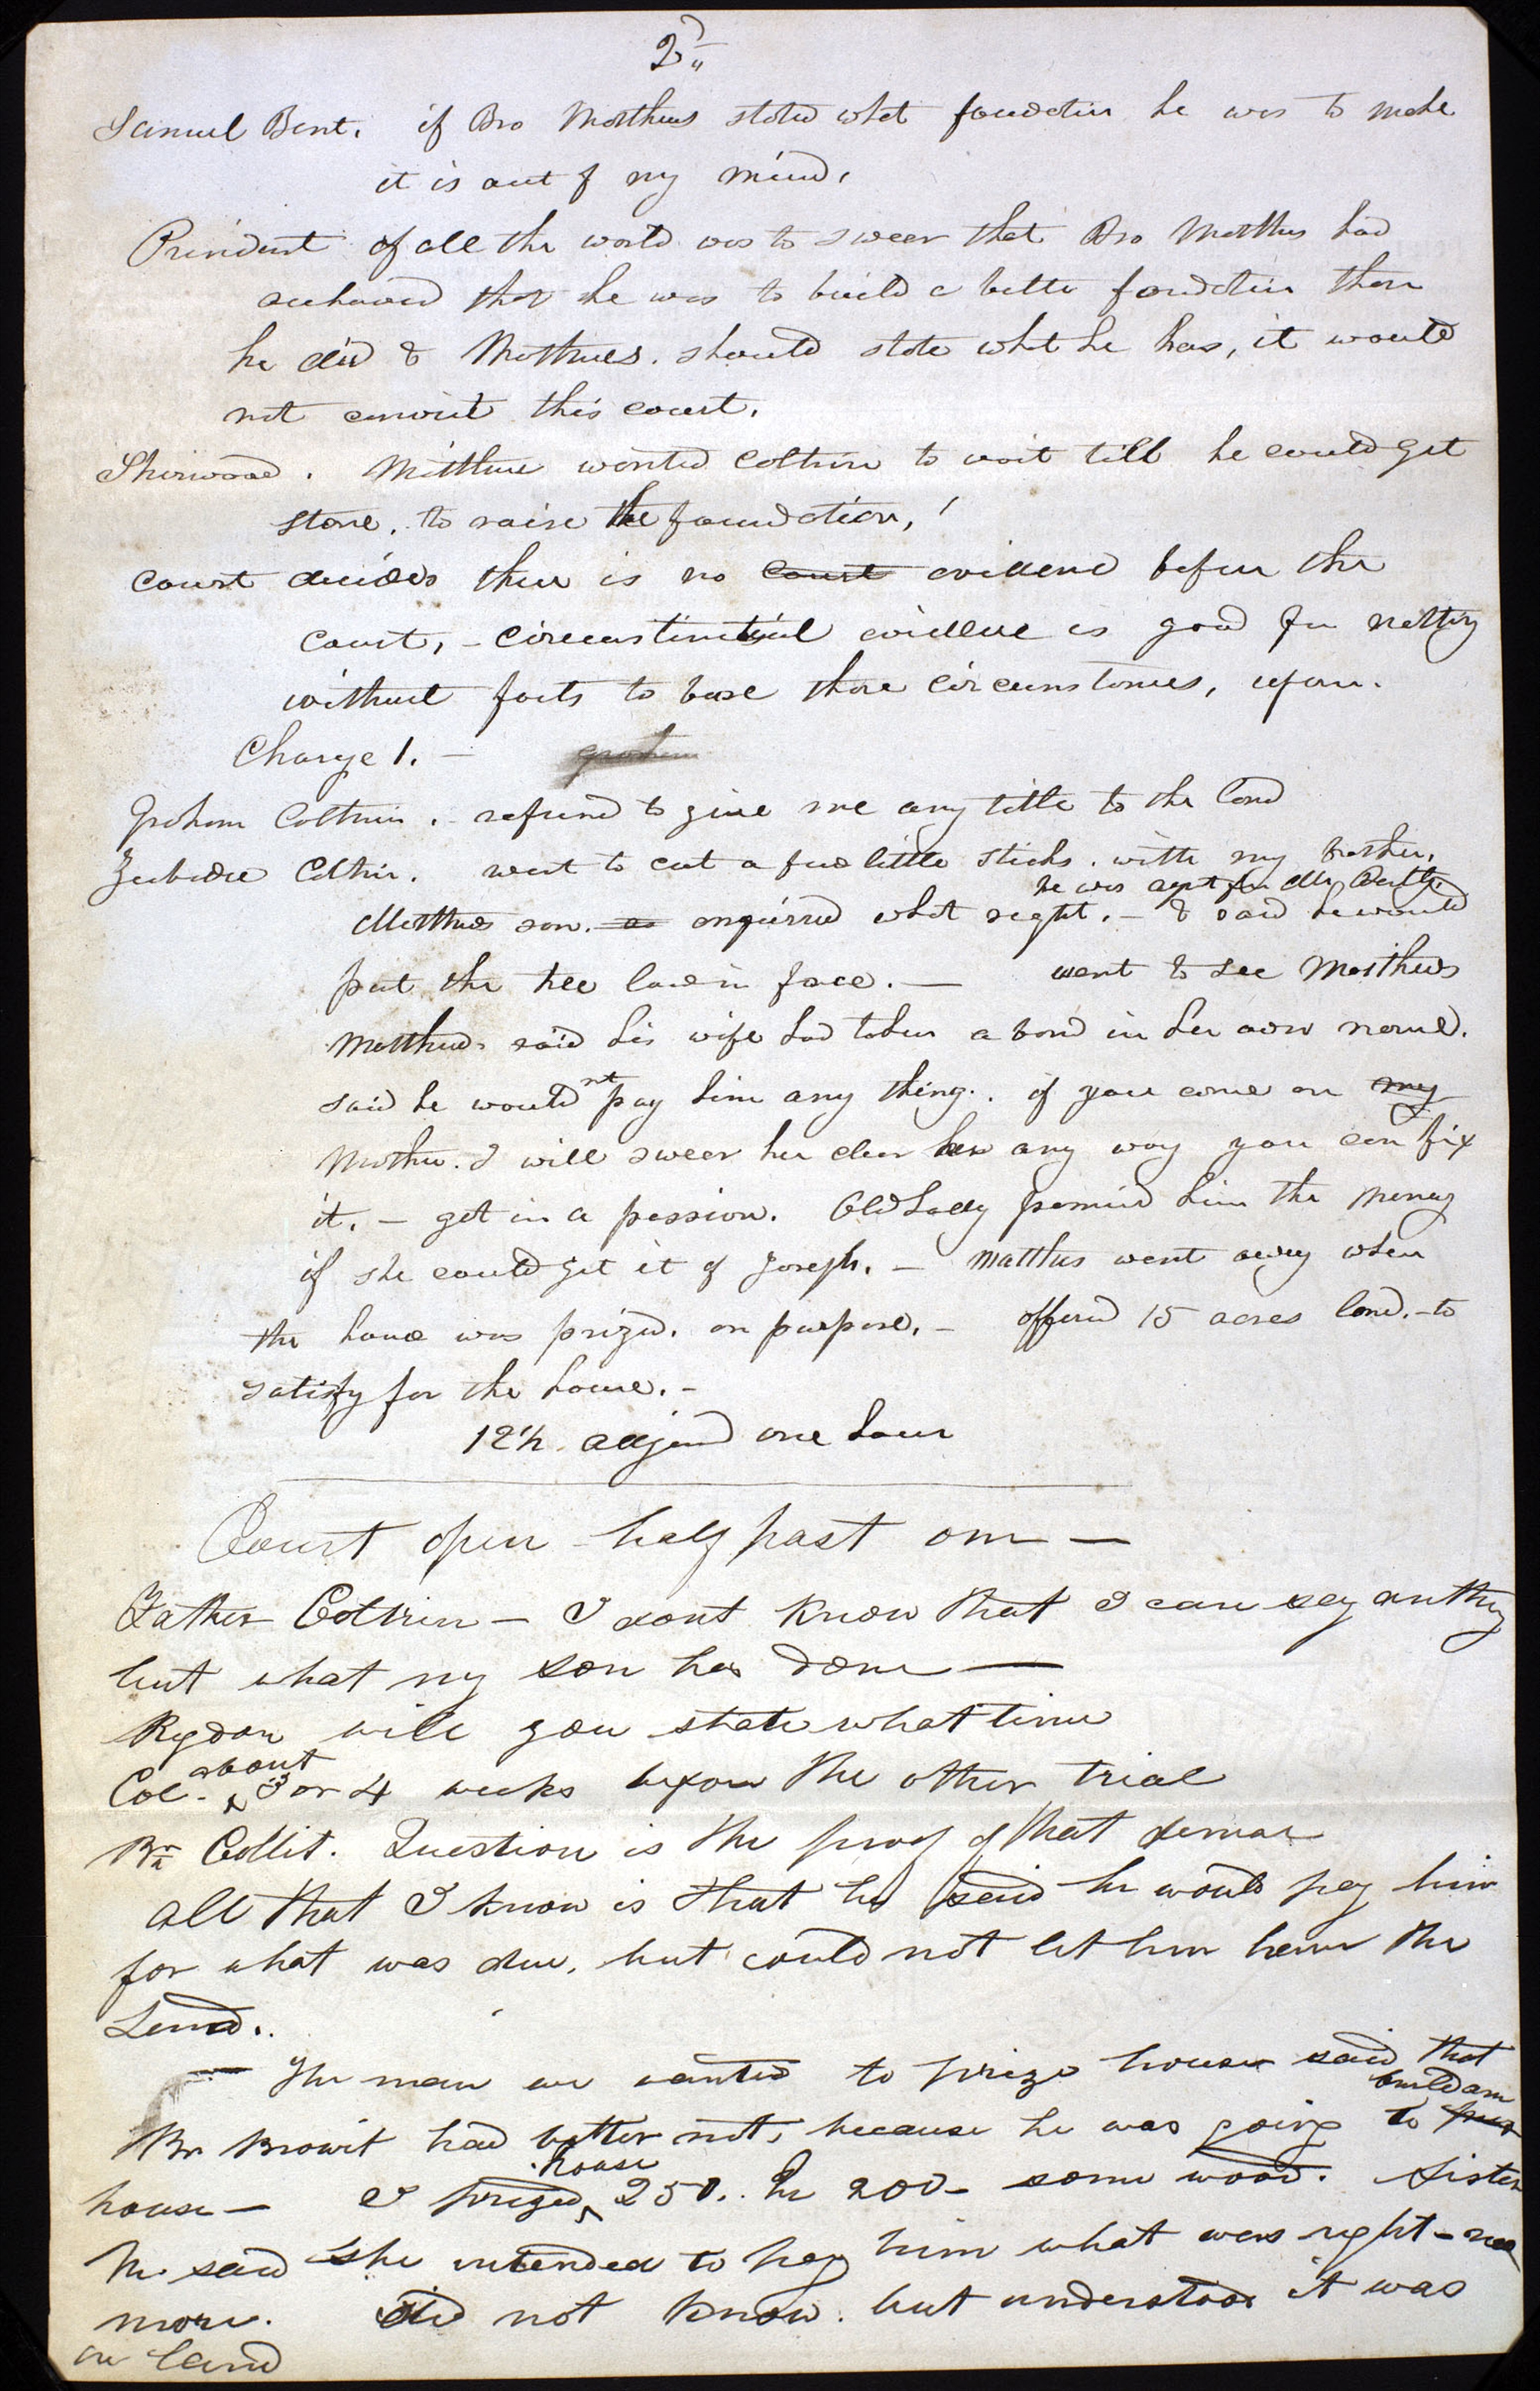 2d
Samuel Bent. if Bro Matthews stated what foundation he was to make
it is out of my mind.
President if all the world was to swear that Bro Matthews had
that he was to build a better foundation than
he did & Matthews. should state what he has, it would
not convict this court.
Sherwood. Matthews wanted Coltrin to wait till he could get
stone. to raise the foundation,
court decides there is no court evidence before the
court, - circumstantial evidence is good for nothing
without facts to base those circumstances, upon.
Charge 1. - graham
Graham Coltrin. - refused to give me any title to the land
Zebedee Coltrin. went to cut a few little sticks. with my brother,
he was agent for Mr
Matthews son. as enquired what right. - & said he would
put the law in force. — went to see Matthews
Matthews said his wife had taken a bond in her own name.
said he would not pay him any thing. if you come on my
Mother. I will swear her clear any way you can fix
it. - got in a passion. Old Lady promised him the money
if she could get it of Joseph. - Matthews went away when
the house was prized. on purpose. - offered 15 acres land. - to
satisfy for the house. -
12½ adjornd one hour
Court open half past one —
Father Coltrin — I dont know that I can say anything
but what my son has done —
Rigdon will you state what time
about
Col. 3 or 4 weeks before the other trial
Br Question is the proof of that
all that I know is that he said he would pay him
for what was due, but could not let him have the
Land.
— The man we wanted to prize house said that
build a
Br had better not, because he was going to
house
house — I prized 250. he 200 - some wood. Sister
M. said she intended to pay him what was right - no
more. did not know. but understood it was
in land